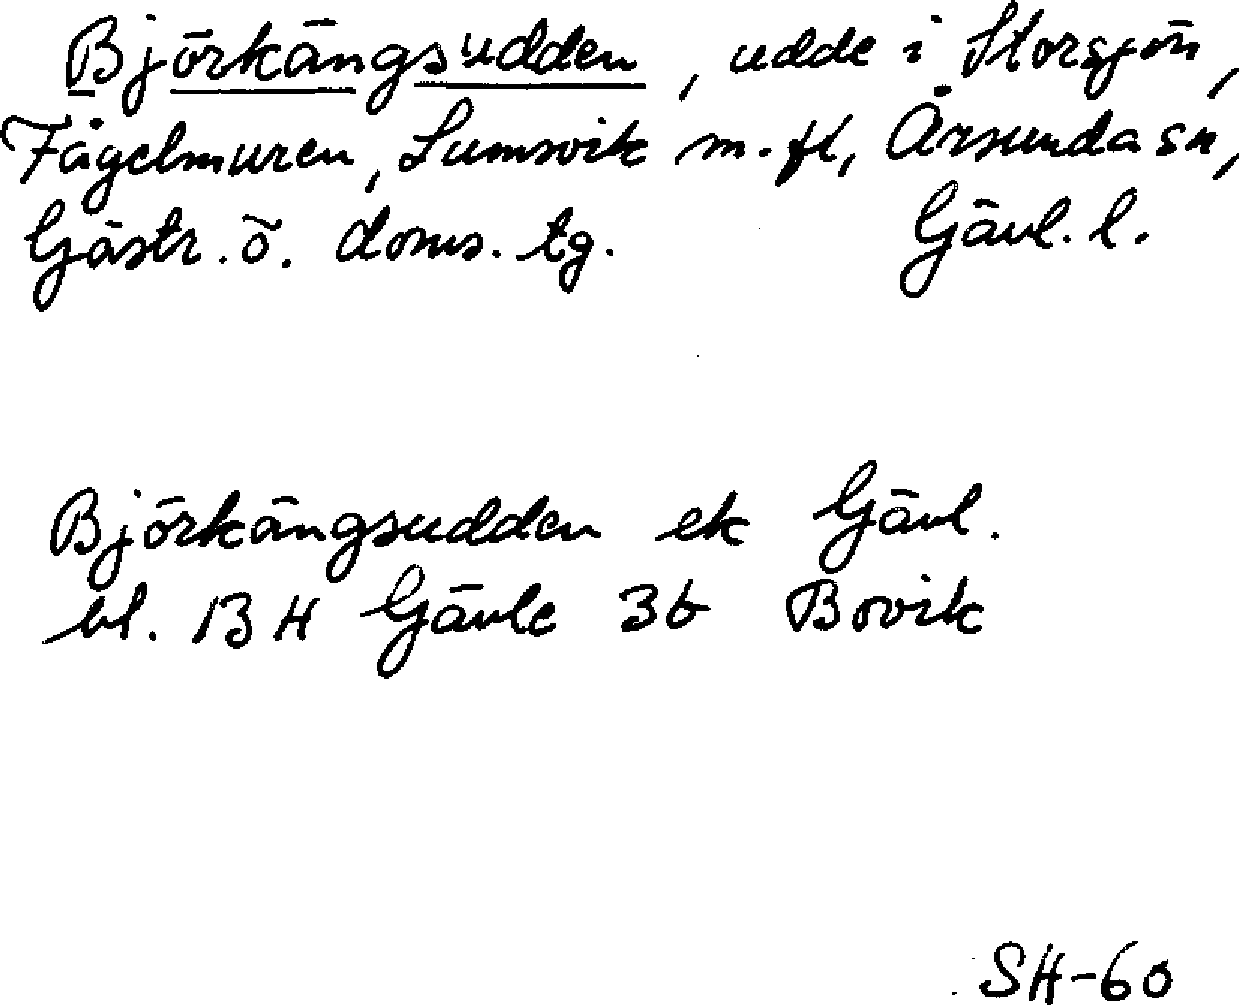 Björkängsudden, udde i Storsjön,
Fågelmuren, Lumsvik m. fl, Årsunda sn,
Gästr. ö. doms. tg. Gävl. l.
Björkängsudden ek Gävl.
bl. 13 H Gävle 3b Bovik
SH-60